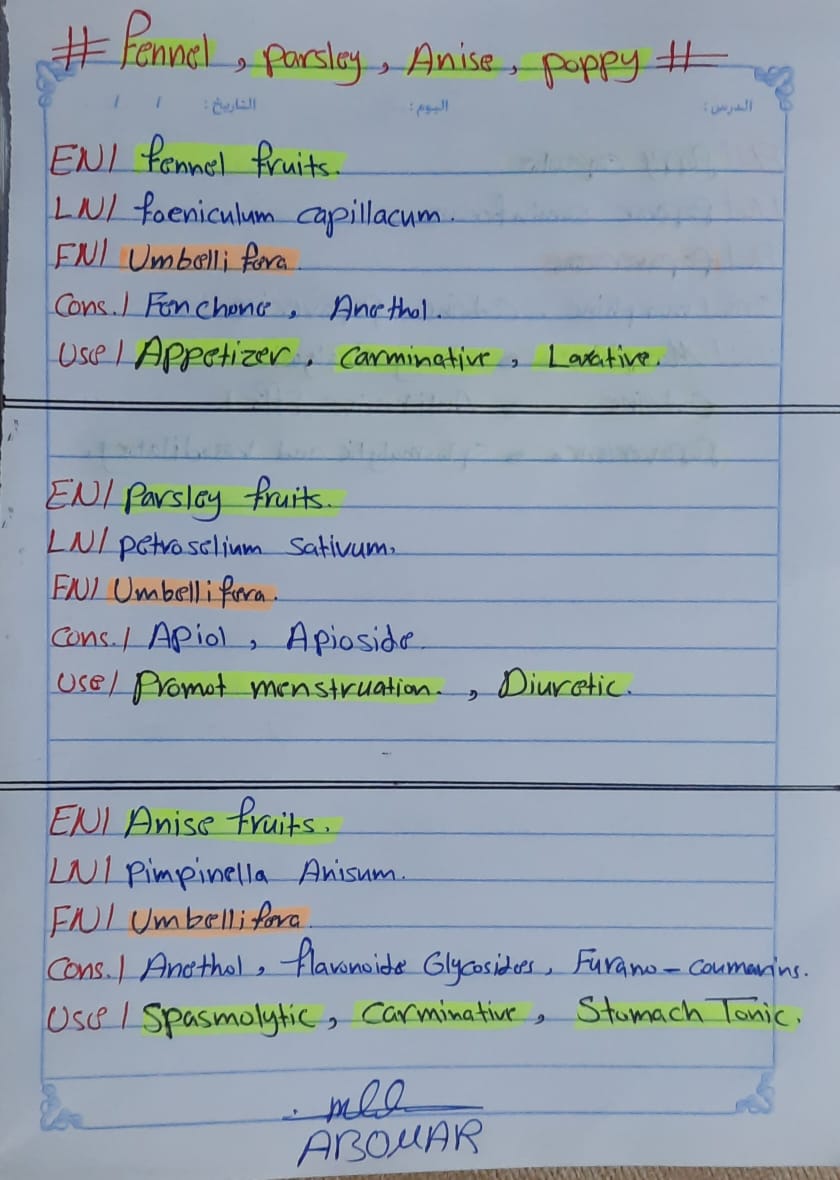 # Fennel, parsley, Anise, poppy #
التاريخ: / / اليوم: الدرس:
EN/ fennel fruits.
LN/ foeniculum capillacum.
FN/ Umbellifera
Cons./ Fenchone, Anethol.
Use/ Appetizer, Carminative, Laxative.
EN/ Parsley fruits.
LN/ petroselium Sativum.
FN/ Umbellifera.
Cons./ Apiol, Apioside.
Use/ Promot menstruation., Diuretic.
EN/ Anise fruits.
LN/ Pimpinella Anisum.
FN/ Umbellifera
Cons./ Anethol, flavonoide Glycosides, Furano-coumarins.
Use/ Spasmolytic, Carminative, Stomach Tonic.
ABOMAR